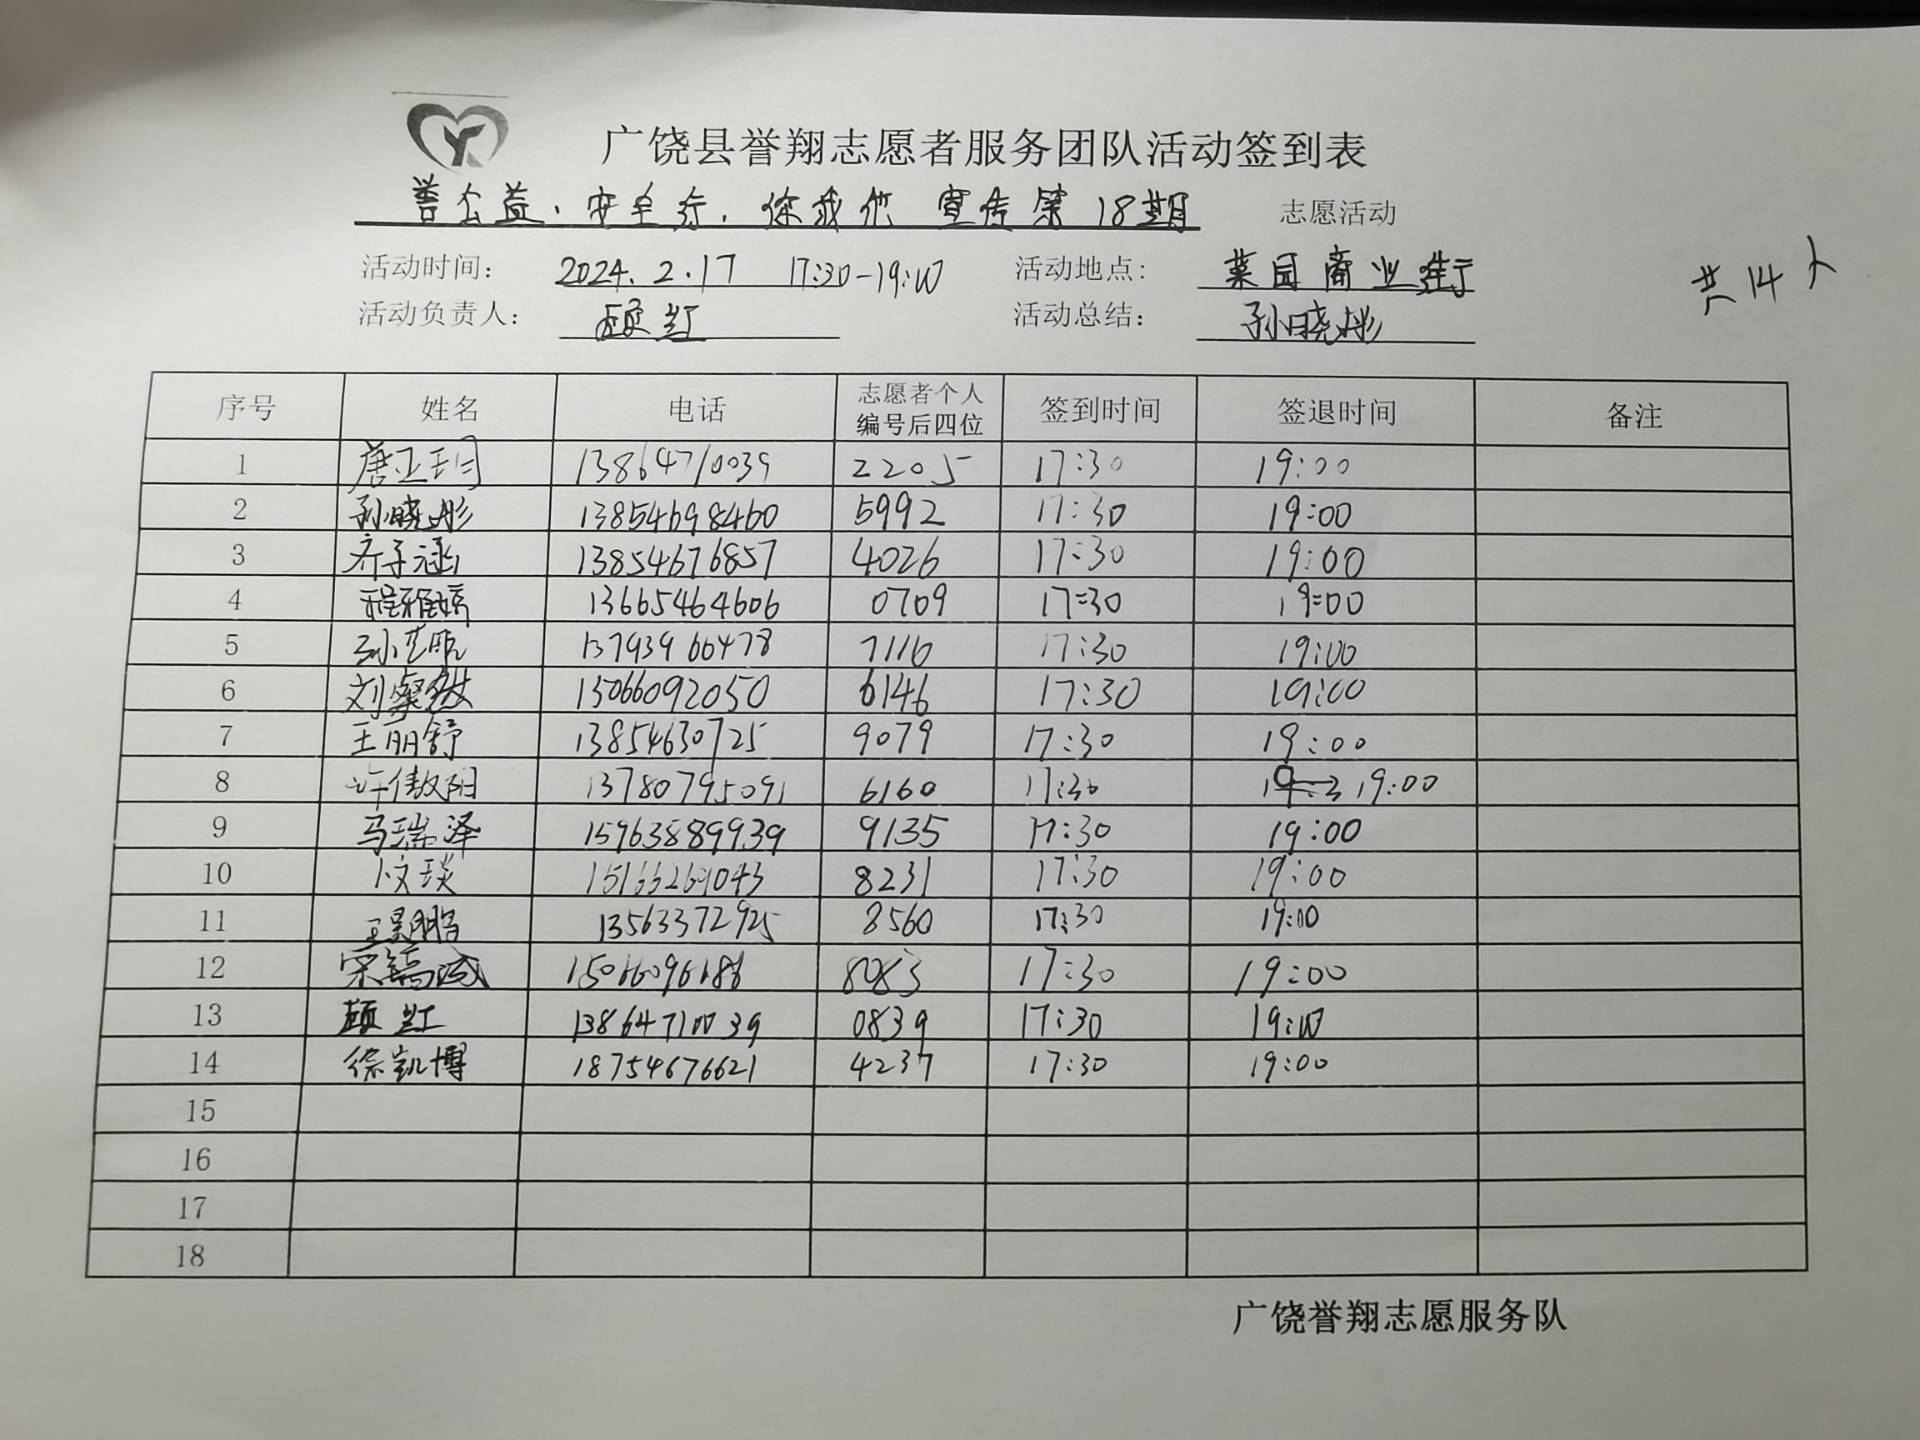 广饶县誉翔志愿者服务团队活动签到表
誉公益·安全行·你我他 宣传第18期 志愿活动
活动时间: 2024.2.17 17:30-19:00 活动地点: 菜园商业街
共14人
活动负责人: 顾红 活动总结: 孙晓彤
序号 姓名 电话 志愿者个人编号后四位 签到时间 签退时间 备注
1 唐正玥 13864710039 2205 17:30 19:00
2 孙晓彤 13854698460 5992 17:30 19:00
3 齐子涵 13854676857 4026 17:30 19:00
4 程雅婧 13665464606 0709 17:30 19:00
5 孙艺 13793960478 7116 17:30 19:00
6 刘粲然 15066092050 6146 17:30 19:00
7 王丽舒 13854630725 9079 17:30 19:00
8 许傲阳 13780795091 6160 17:30 19:00
9 马瑞泽 15963889939 9135 17:30 19:00
10 琰 15166269043 8231 17:30 19:00
11 王景鹏 13563372925 8560 17:30 19:00
12 宋镐诚 15066096186 8083 17:30 19:00
13 顾红 13864710039 0839 17:30 19:00
14 徐凯博 18754676621 4237 17:30 19:00
15
16
17
18
广饶誉翔志愿服务队